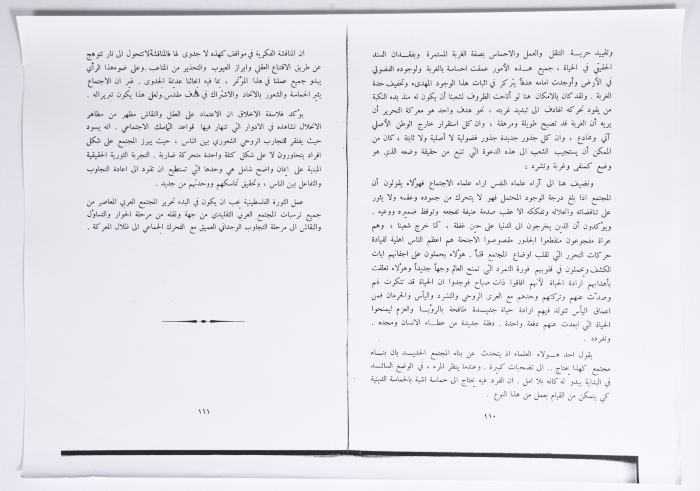 وتقييد حريـــة التنقل والعمل والاحساس بصفة الغربة المستمرة وبفقـدان السند
الحقيقي في الحياة ، جميع هـــذه الأمور عمقت احساسه بالغربة ولوجوده الفضولي
في الأرض وأوجدت امامه هدفاً يتركز في اثبات هذا الوجود المهدىء وتخفيف حدة
الغربة . ولقد كان بالامكان هنا لو أتاحت الظروف لشعبنا أن يكون له منذ بدء النكبة
من يقود تحركه الهادف الى تبديد غربته ، نحو هدف واحد هو معركة التحرير أن
يريه أن الغربة قد تصبح طويلة ومرهقة ، وان كل استقرار خارج الوطن الأصلي
آني ومخادع ، وان كل جذور جديدة جذور فضولية لا أصلية ولا ثابتة ، كان من
الممكن أن يستجيب الشعب الى هذه الدعوة التي تنبع من حقيقة وضعه الذي هو
وضع كمنفى وغربة وتشرد ،
ونضيف هنا الى آراء علماء النفس اراء علماء الاجتماع فهؤلاء يقولون أن
المجتمع اذا بلغ درجة الوجود المحتمل فهو لا يتحرك من جموده وعقمه ولا يثور
على تناقضاته وانحلاله وتفككه الا عقب صدمة عنيفة تفجعه وتوقظ ضميره ووعيه .
ويؤكدون أن الذين يخرجون الى الدنيا على حين غفلة ، كما خرج شعبنا ، وهم
عراة مفجوعون منقطعوا الجذور مقصوصوا الاجنحة هم اعظم الناس اهلية لقيادة
حركات التحرر التي تقلب اوضاع المجتمع قلباً . هؤلاء يحملون على اجفانهم ايات
الكشف ويحملون في قلوبهم فورة التمرد التي تمنح العالم وجهاً جديداً وهؤلاء تعلقت
بأهدابهم ارادة الحياة لأنهم افاقوا ذات صباح فوجدوا ان الحياة قد تنكرت لهم
وصدّت عنهم وتركتهم وحدهم مع العرى الروحي والتشرد واليأس والحرمان فمن
اعماق اليأس تتولد فيهم ارادة حياة جديــدة طافحة بالرؤيا والعزم ليمنحوا
الحياة التي ابعدت عنهم دفعة واحدة . دفقة جديدة من عطــاء الانسان ومجده .
وتفرده .
يقول احد هـــولاء العلماء اذ يتحدث عن بناء المجتمع الجديـد، بان بنــاء
مجتمع كهذا يحتاج .. الى تضحيات كبيرة . وعندما ينظر المرء ، في الوضع السائــد
في البداية يبدو له كانه بلا امل . ان الفرد فيه يحتاج الى حماسة اشبة بالحماسة الدينية
كي يتمكن من القيام بعمل من هذا النوع .
١١٠
ان المناقشة الفكرية في مواقف كهذه لا جدوى لها فالمناقشة لاتتحول الى نار تتوهج
عن طريق الاقتناع العقلي وابراز العيوب والتحذير من المتاعب .وعلى ضوءهذا الرأي
يبدو جميع عملنا في هذا المؤتمر ، بما فيه ابحاثنا عديمة الجدوى . غير ان الاجتماع
يثير الحماسة والشعور بالاتحاد والاشتراك في هدف مقدس.ولعلى هذا يكون تبريراله .
يؤكد فلاسفة الاخلاق ان الاعتماد على العقل والنقاش مظهر من مظاهر
الانحلال نشاهده في الادوار التي تنهار فيها قواعد التماسك الاجتماعي . انه يسود
حيث يفتقر للتجارب الروحي الشعوري بين الناس ، حيث يبرز المجتمع على شكل
افراد يتحاورون لا على شكل كتلة واحدة متحركة ضاربة . التجربة الثورية الحقيقية
المبنية على إيمان واضح شامل هي وحدها التي تستطيع ان تقود الى اعادة التجاوب
والتفاعل بين الناس ، وتحقيق تماسكهم ووحدتهم من جديد .
عمل الثورة الفلسطينية يجب ان يكون في البدء تحرير المجتمع العربي المعاصر من
جميع ترسبات المجتمع العربي التقليدي من جهة ونقله من مرحلة الحوار والتساؤل
والنقاش الى مرحلة التجاوب الوحداني العميق مع التحرك الجماعي الى ظلال المعركة .
١١١